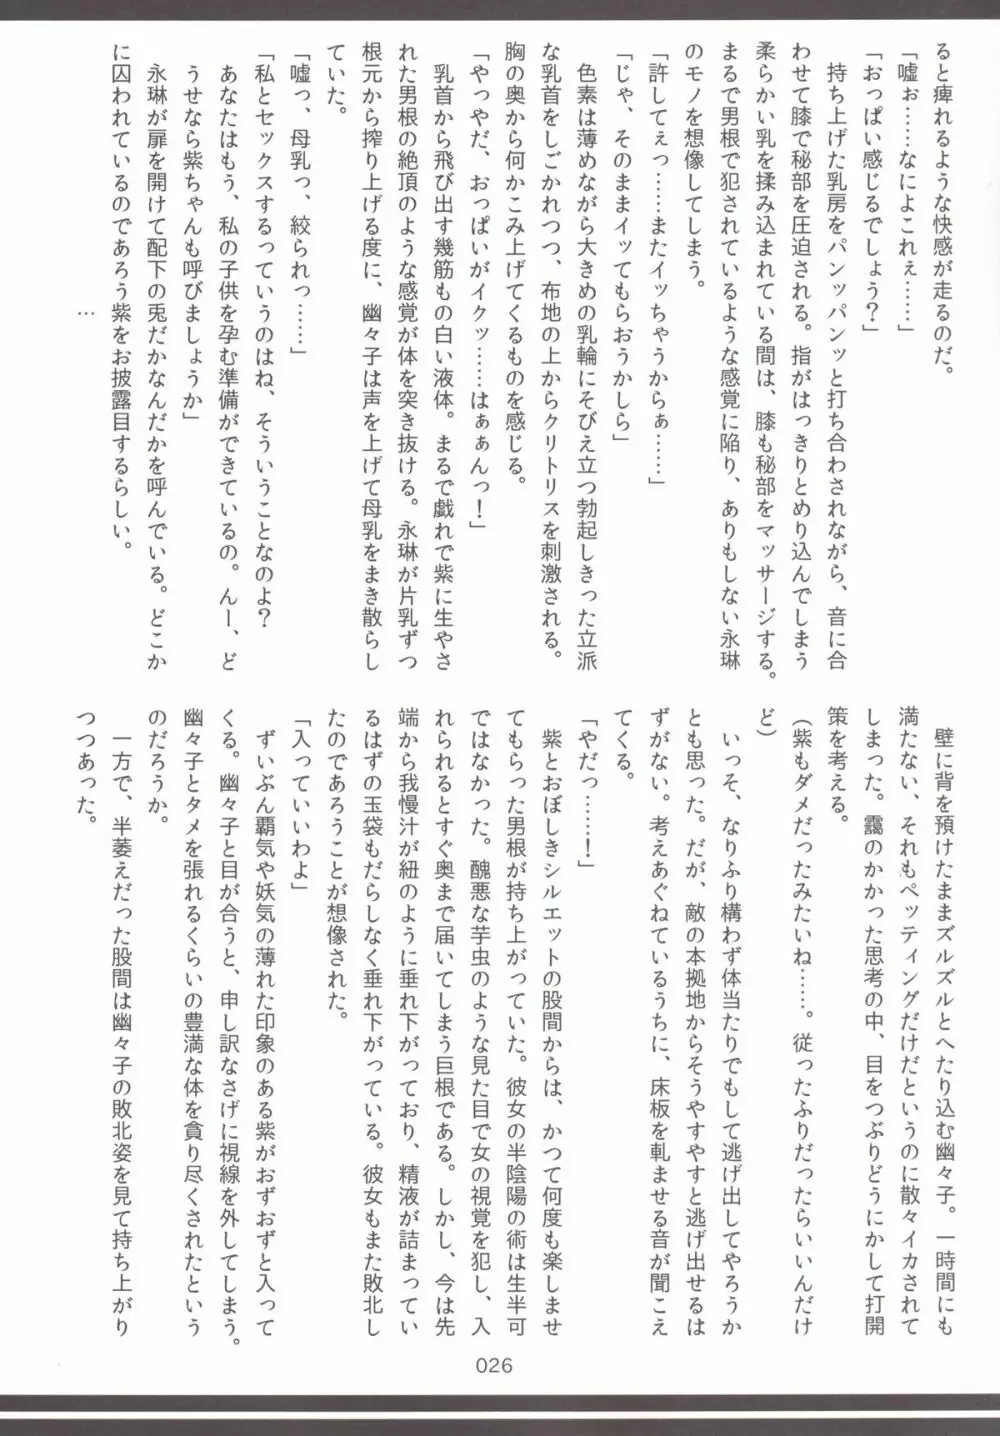 ると痺れるような快感が走るのだ。
「嘘ぉ……なによこれぇ……」
「おっぱい感じるでしょう？」
持ち上げた乳房をパンッパンッと打ち合わされながら、音に合
わせて膝で秘部を圧迫される。指がはっきりとめり込んでしまう
柔らかい乳を揉み込まれている間は、膝も秘部をマッサージする。
まるで男根で犯されているような感覚に陥り、ありもしない永琳
のモノを想像してしまう。
「許してぇっ……またイッちゃうからぁ……」
「じゃ、そのままイッてもらおうかしら」
色素は薄めながら大きめの乳輪にそびえ立つ勃起しきった立派
な乳首をしごかれつつ、布地の上からクリトリスを刺激される。
胸の奥から何かこみ上げてくるものを感じる。
「やっやだ、おっぱいがイクッ……はぁぁんっ！」
乳首から飛び出す幾筋もの白い液体。まるで戯れで紫に生やさ
れた男根の絶頂のような感覚が体を突き抜ける。永琳が片乳ずつ
根元から搾り上げる度に、幽々子は声を上げて母乳をまき散らし
ていた。
「嘘っ、母乳っ、絞られっ……」
「私とセックスするっていうのはね、そういうことなのよ？
あなたはもう、私の子供を孕む準備ができているの。んー、ど
うせなら紫ちゃんも呼びましょうか」
永琳が扉を開けて配下の兎だかなんだかを呼んでいる。どこか
に囚われているのであろう紫をお披露目するらしい。
…
壁に背を預けたままズルズルとへたり込む幽々子。一時間にも
満たない、それもペッティングだけだというのに散々イカされて
しまった。靄のかかった思考の中、目をつぶりどうにかして打開
策を考える。
（紫もダメだったみたいね……。従ったふりだったらいいんだけ
ど）
いっそ、なりふり構わず体当たりでもして逃げ出してやろうか
とも思った。だが、敵の本拠地からそうやすやすと逃げ出せるは
ずがない。考えあぐねているうちに、床板を軋ませる音が聞こえ
てくる。
「やだっ……！」
紫とおぼしきシルエットの股間からは、かつて何度も楽しませ
てもらった男根が持ち上がっていた。彼女の半陰陽の術は生半可
ではなかった。醜悪な芋虫のような見た目で女の視覚を犯し、入
れられるとすぐ奥まで届いてしまう巨根である。しかし、今は先
端から我慢汁が紐のように垂れ下がっており、精液が詰まってい
るはずの玉袋もだらしなく垂れ下がっている。彼女もまた敗北し
たのであろうことが想像された。
「入っていいわよ」
ずいぶん覇気や妖気の薄れた印象のある紫がおずおずと入って
くる。幽々子と目が合うと、申し訳なさげに視線を外してしまう。
幽々子とタメを張れるくらいの豊満な体を貪り尽くされたという
のだろうか。
一方で、半萎えだった股間は幽々子の敗北姿を見て持ち上がり
つつあった。
026